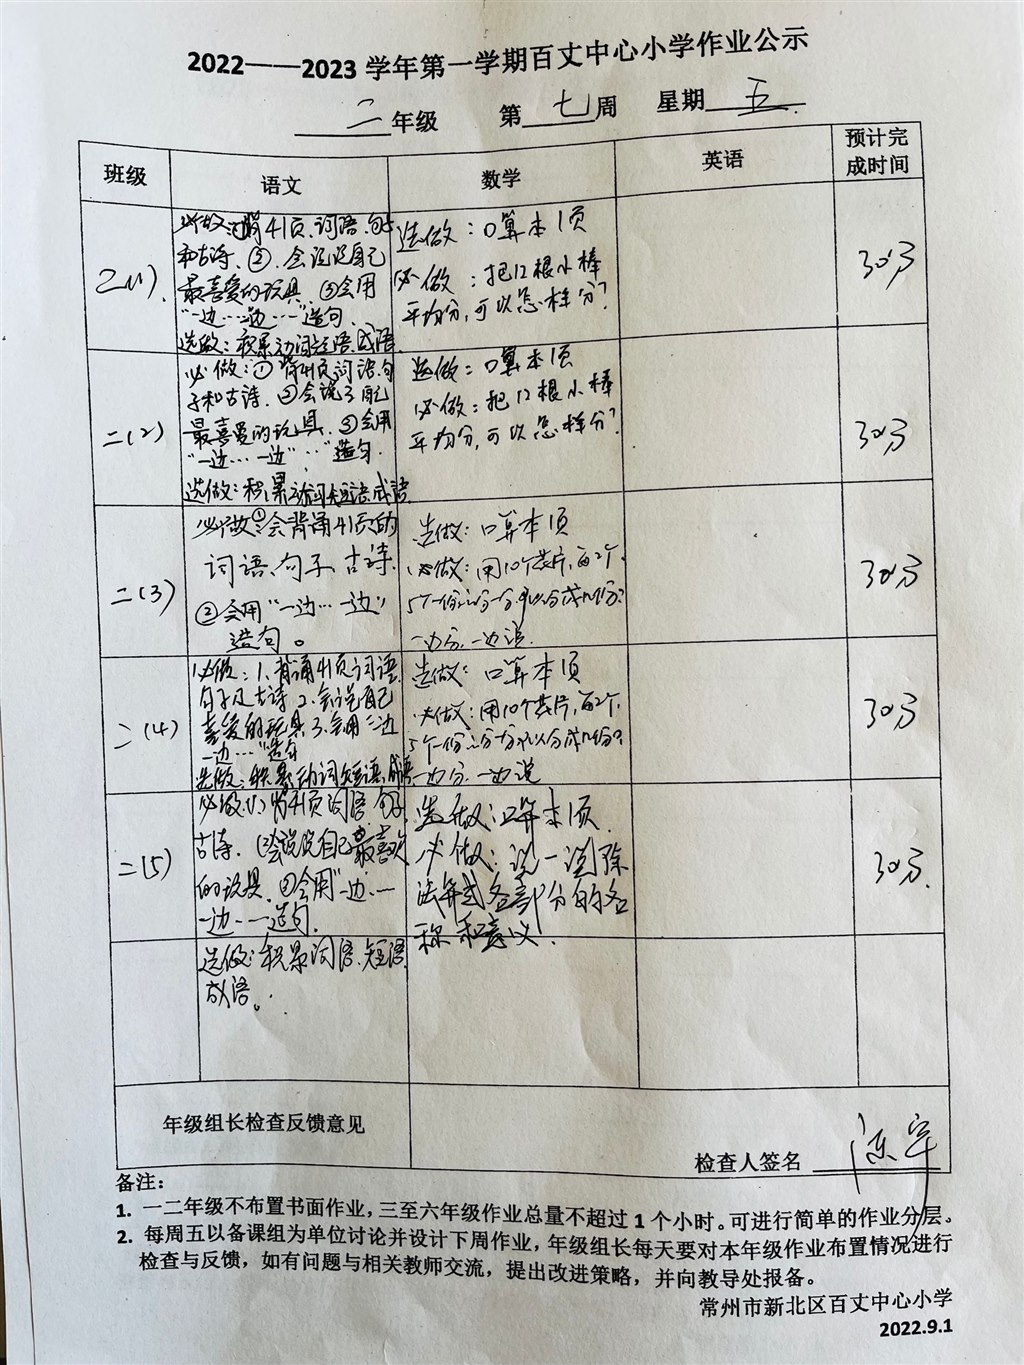 2022——2023 学年第一学期百丈中心小学作业公示
二年级 第七周 星期五
班级 语文 数学 英语 预计完成时间
二(1)
必做:①背41页.词语.句子
和古诗.②.会说说自己
最喜爱的玩具.③会用
“一边…一边…”造句.
选做:积累动词短语.成语
选做:口算本1页
必做:把12根小棒
平均分,可以怎样分?
30分
二(2)
必做:①背41页词语.句
子和古诗.②会说说自己
最喜爱的玩具.③会用
“一边…一边”…”造句.
选做:积累动词短语.成语
选做:口算本1页
必做:把12根小棒
平均分,可以怎样分?
30分
二(3)
必做:①会背诵41页的
词语、句子、古诗.
②会用“一边…一边”
造句。
选做:口算本1页
必做:用10个芯片,每2个.
5个一份 分一分 可以分成几份?
一边分.一边说.
30分
二(4)
必做:1、背诵41页词语
句子及古诗 2.会说自己
喜爱的玩具 3.会用“一边
一边…”造句
选做:积累动词短语.成语
选做:口算本1页
必做:用10个芯片,每2个.
5个一份 分一分 可以分成几份?
一边分.一边说
30分
二(5)
必做:(1)背41页词语.句子
古诗.(2)会说说自己最喜欢
的玩具.③会用“一边…
一边…造句.
选做:积累词语.短语.
成语。
选做:口算本1页.
必做:说一说除
法算式各部分的名
称和意义.
30分.
年级组长检查反馈意见
检查人签名
备注:
1. 一二年级不布置书面作业,三至六年级作业总量不超过 1 个小时。可进行简单的作业分层。
2. 每周五以备课组为单位讨论并设计下周作业,年级组长每天要对本年级作业布置情况进行
检查与反馈,如有问题与相关教师交流,提出改进策略,并向教导处报备。
常州市新北区百丈中心小学
2022.9.1